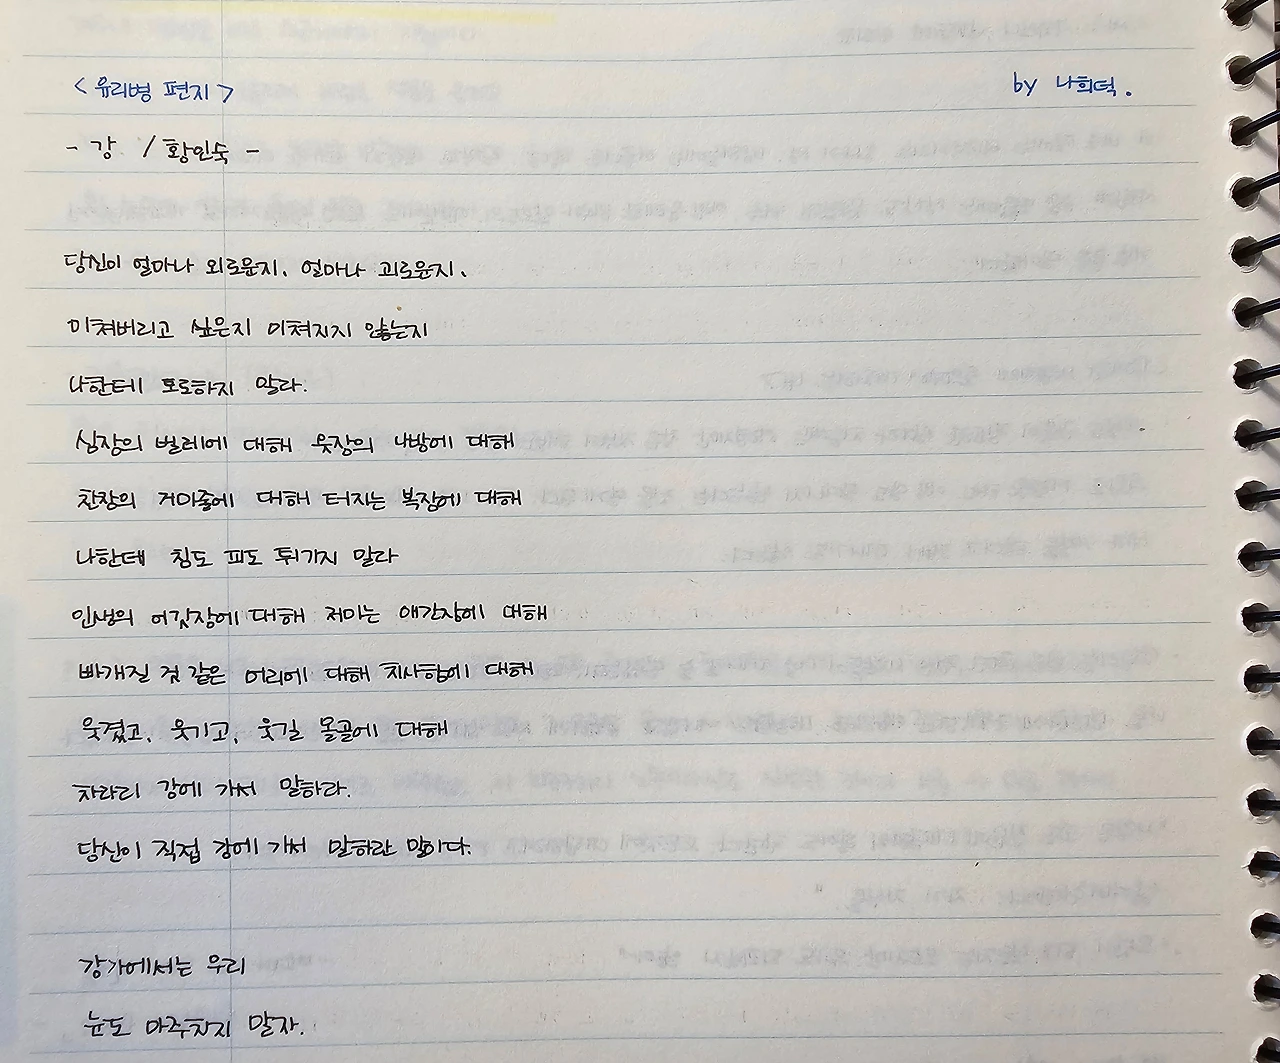 <유리병 편지> by 나희덕.
- 강 / 황인숙 -
당신이 얼마나 외로운지, 얼마나 괴로운지,
미쳐버리고 싶은지 미쳐지지 않는지
나한테 토로하지 말라.
심장의 벌레에 대해 옷장의 나방에 대해
찬장의 거미줄에 대해 터지는 복장에 대해
나한테 침도 피도 튀기지 말라
인생의 어깃장에 대해 저미는 애간장에 대해
빠개질 것 같은 머리에 대해 치사함에 대해
웃겼고, 웃기고, 웃길 몰골에 대해
차라리 강에 가서 말하라.
당신이 직접 강에 가서 말하란 말이다.
강가에서는 우리
눈도 마주치지 말자.